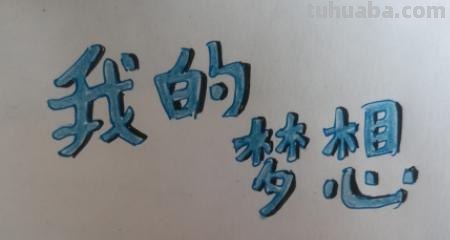 tuhuaba.com
我的
梦想